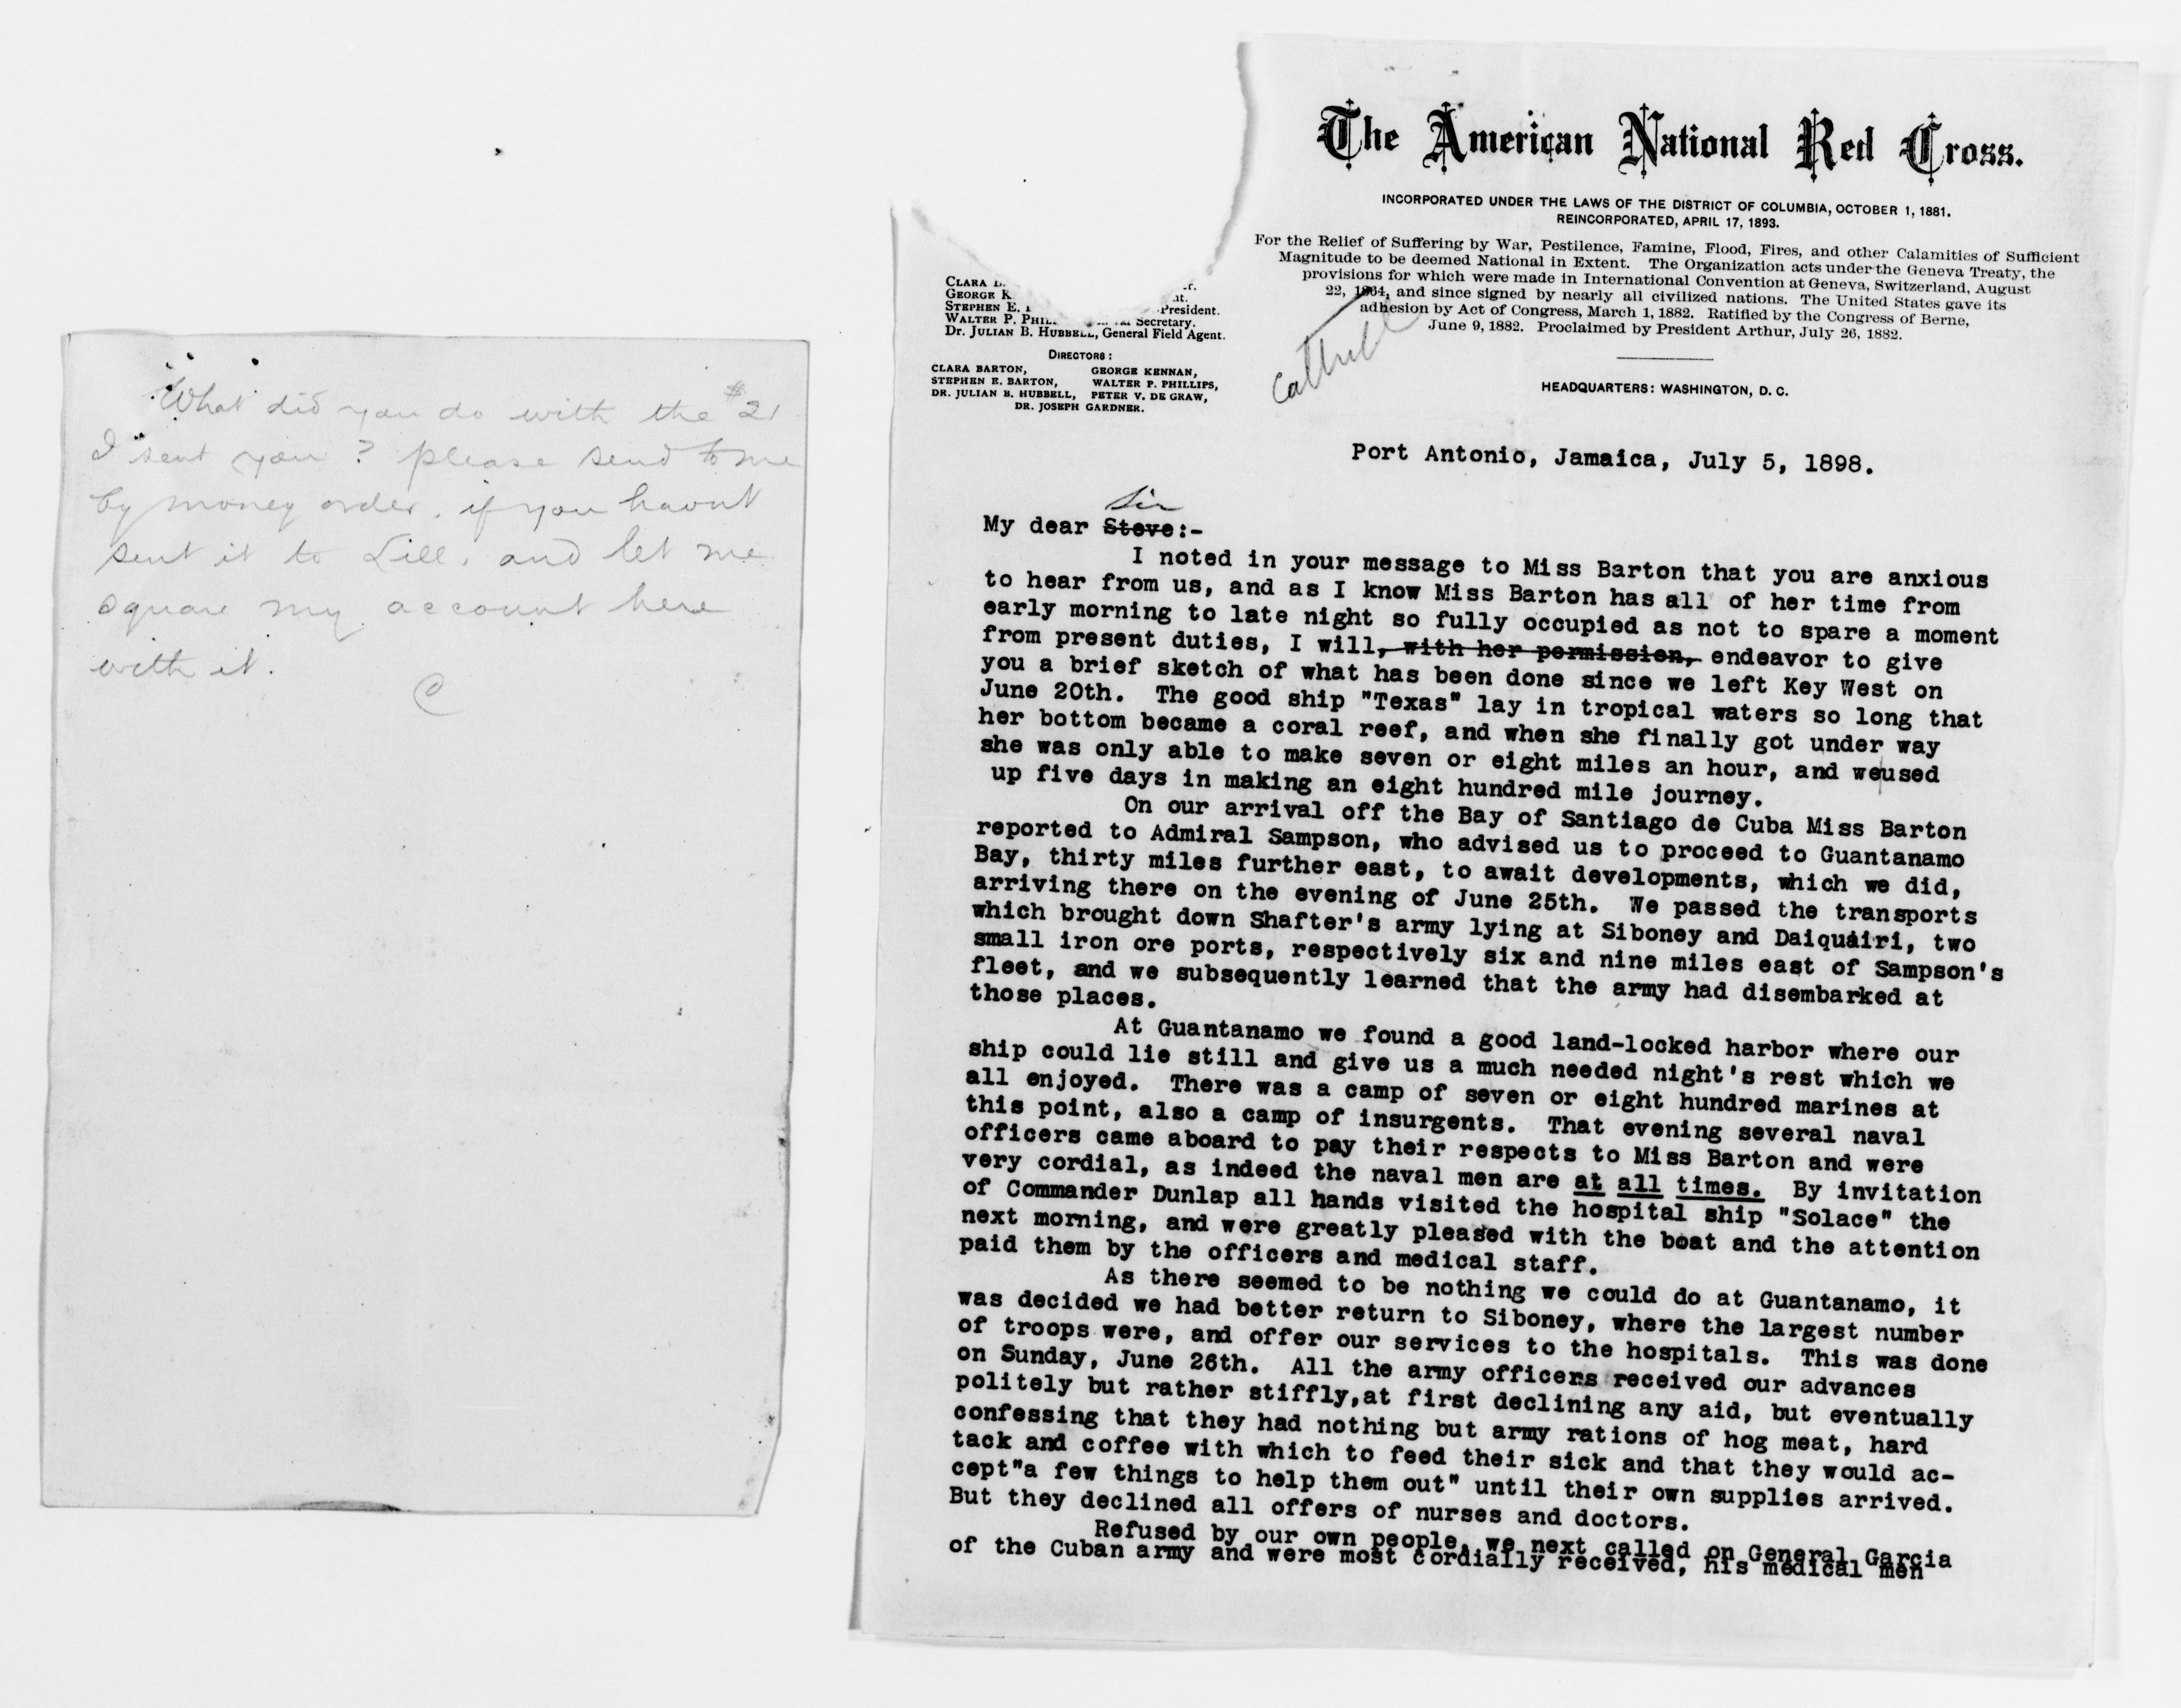 What did you do with the $21
I sent you? please send to me
by money order, if you havnt
sent it to Lill, and let me
square my account here
with it.
C
The American National Red Cross.
INCORPORATED UNDER THE LAWS OF THE DISTRICT OF COLUMBIA, OCTOBER 1, 1881.
REINCORPORATED, APRIL 17, 1893.
For the Relief of Suffering by War, Pestilence, Famine, Flood, Fires, and other Calamities of Sufficient
Magnitude to be deemed National in Extent. The Organization acts under the Geneva Treaty, the
provisions for which were made in International Convention at Geneva, Switzerland, August
22, 1864, and since signed by nearly all civilized nations. The United States gave its
adhesion by Act of Congress, March 1, 1882. Ratified by the Congress of Berne,
June 9, 1882. Proclaimed by President Arthur, July 26, 1882.
HEADQUARTERS: WASHINGTON, D. C.
CLARA
GEORGE K
STEPHEN E. President.
WALTER P. PHIL Secretary.
DR. JULIAN B. HUBBELL, General Field Agent.
DIRECTORS:
CLARA BARTON, GEORGE KENNAN,
STEPHEN E. BARTON, WALTER P. PHILLIPS,
DR. JULIAN B. HUBBELL, PETER V. DE GRAW,
DR. JOSEPH GARDNER.
Port Antonio, Jamaica, July 5, 1898.
Sir
My dear Steve:-
I noted in your message to Miss Barton that you are anxious
to hear from us, and as I know Miss Barton has all of her time from
early morning to late night so fully occupied as not to spare a moment
from present duties, I will, with her permission, endeavor to give
you a brief sketch of what has been done since we left Key West on
June 20th. The good ship "Texas" lay in tropical waters so long that
her bottom became a coral reef, and when she finally got under way
she was only able to make seven or eight miles an hour, and we used
up five days in making an eight hundred mile journey.
On our arrival off the Bay of Santiago de Cuba Miss Barton
reported to Admiral Sampson, who advised us to proceed to Guantanamo
Bay, thirty miles further east, to await developments, which we did,
arriving there on the evening of June 25th. We passed the transports
which brought down Shafter's army lying at Siboney and Daiquairi, two
small iron ore ports, respectively six and nine miles east of Sampson's
fleet, and we subsequently learned that the army had disembarked at
those places.
At Guantanamo we found a good land-locked harbor where our
ship could lie still and give us a much needed night's rest which we
all enjoyed. There was a camp of seven or eight hundred marines at
this point, also a camp of insurgents. That evening several naval
officers came aboard to pay their respects to Miss Barton and were
very cordial, as indeed the naval men are at all times. By invitation
of Commander Dunlap all hands visited the hospital ship "Solace" the
next morning, and were greatly pleased with the boat and the attention
paid them by the officers and medical staff.
As there seemed to be nothing we could do at Guantanamo, it
was decided we had better return to Siboney, where the largest number
of troops were, and offer our services to the hospitals. This was done
on Sunday, June 26th. All the army officers received our advances
politely but rather stiffly,at first declining any aid, but eventually
confessing that they had nothing but army rations of hog meat, hard
tack and coffee with which to feed their sick and that they would ac-
cept"a few things to help them out" until their own supplies arrived.
But they declined all offers of nurses and doctors.
Refused by our own people, we next called on General Garcia
of the Cuban army and were most cordially received, his medical men